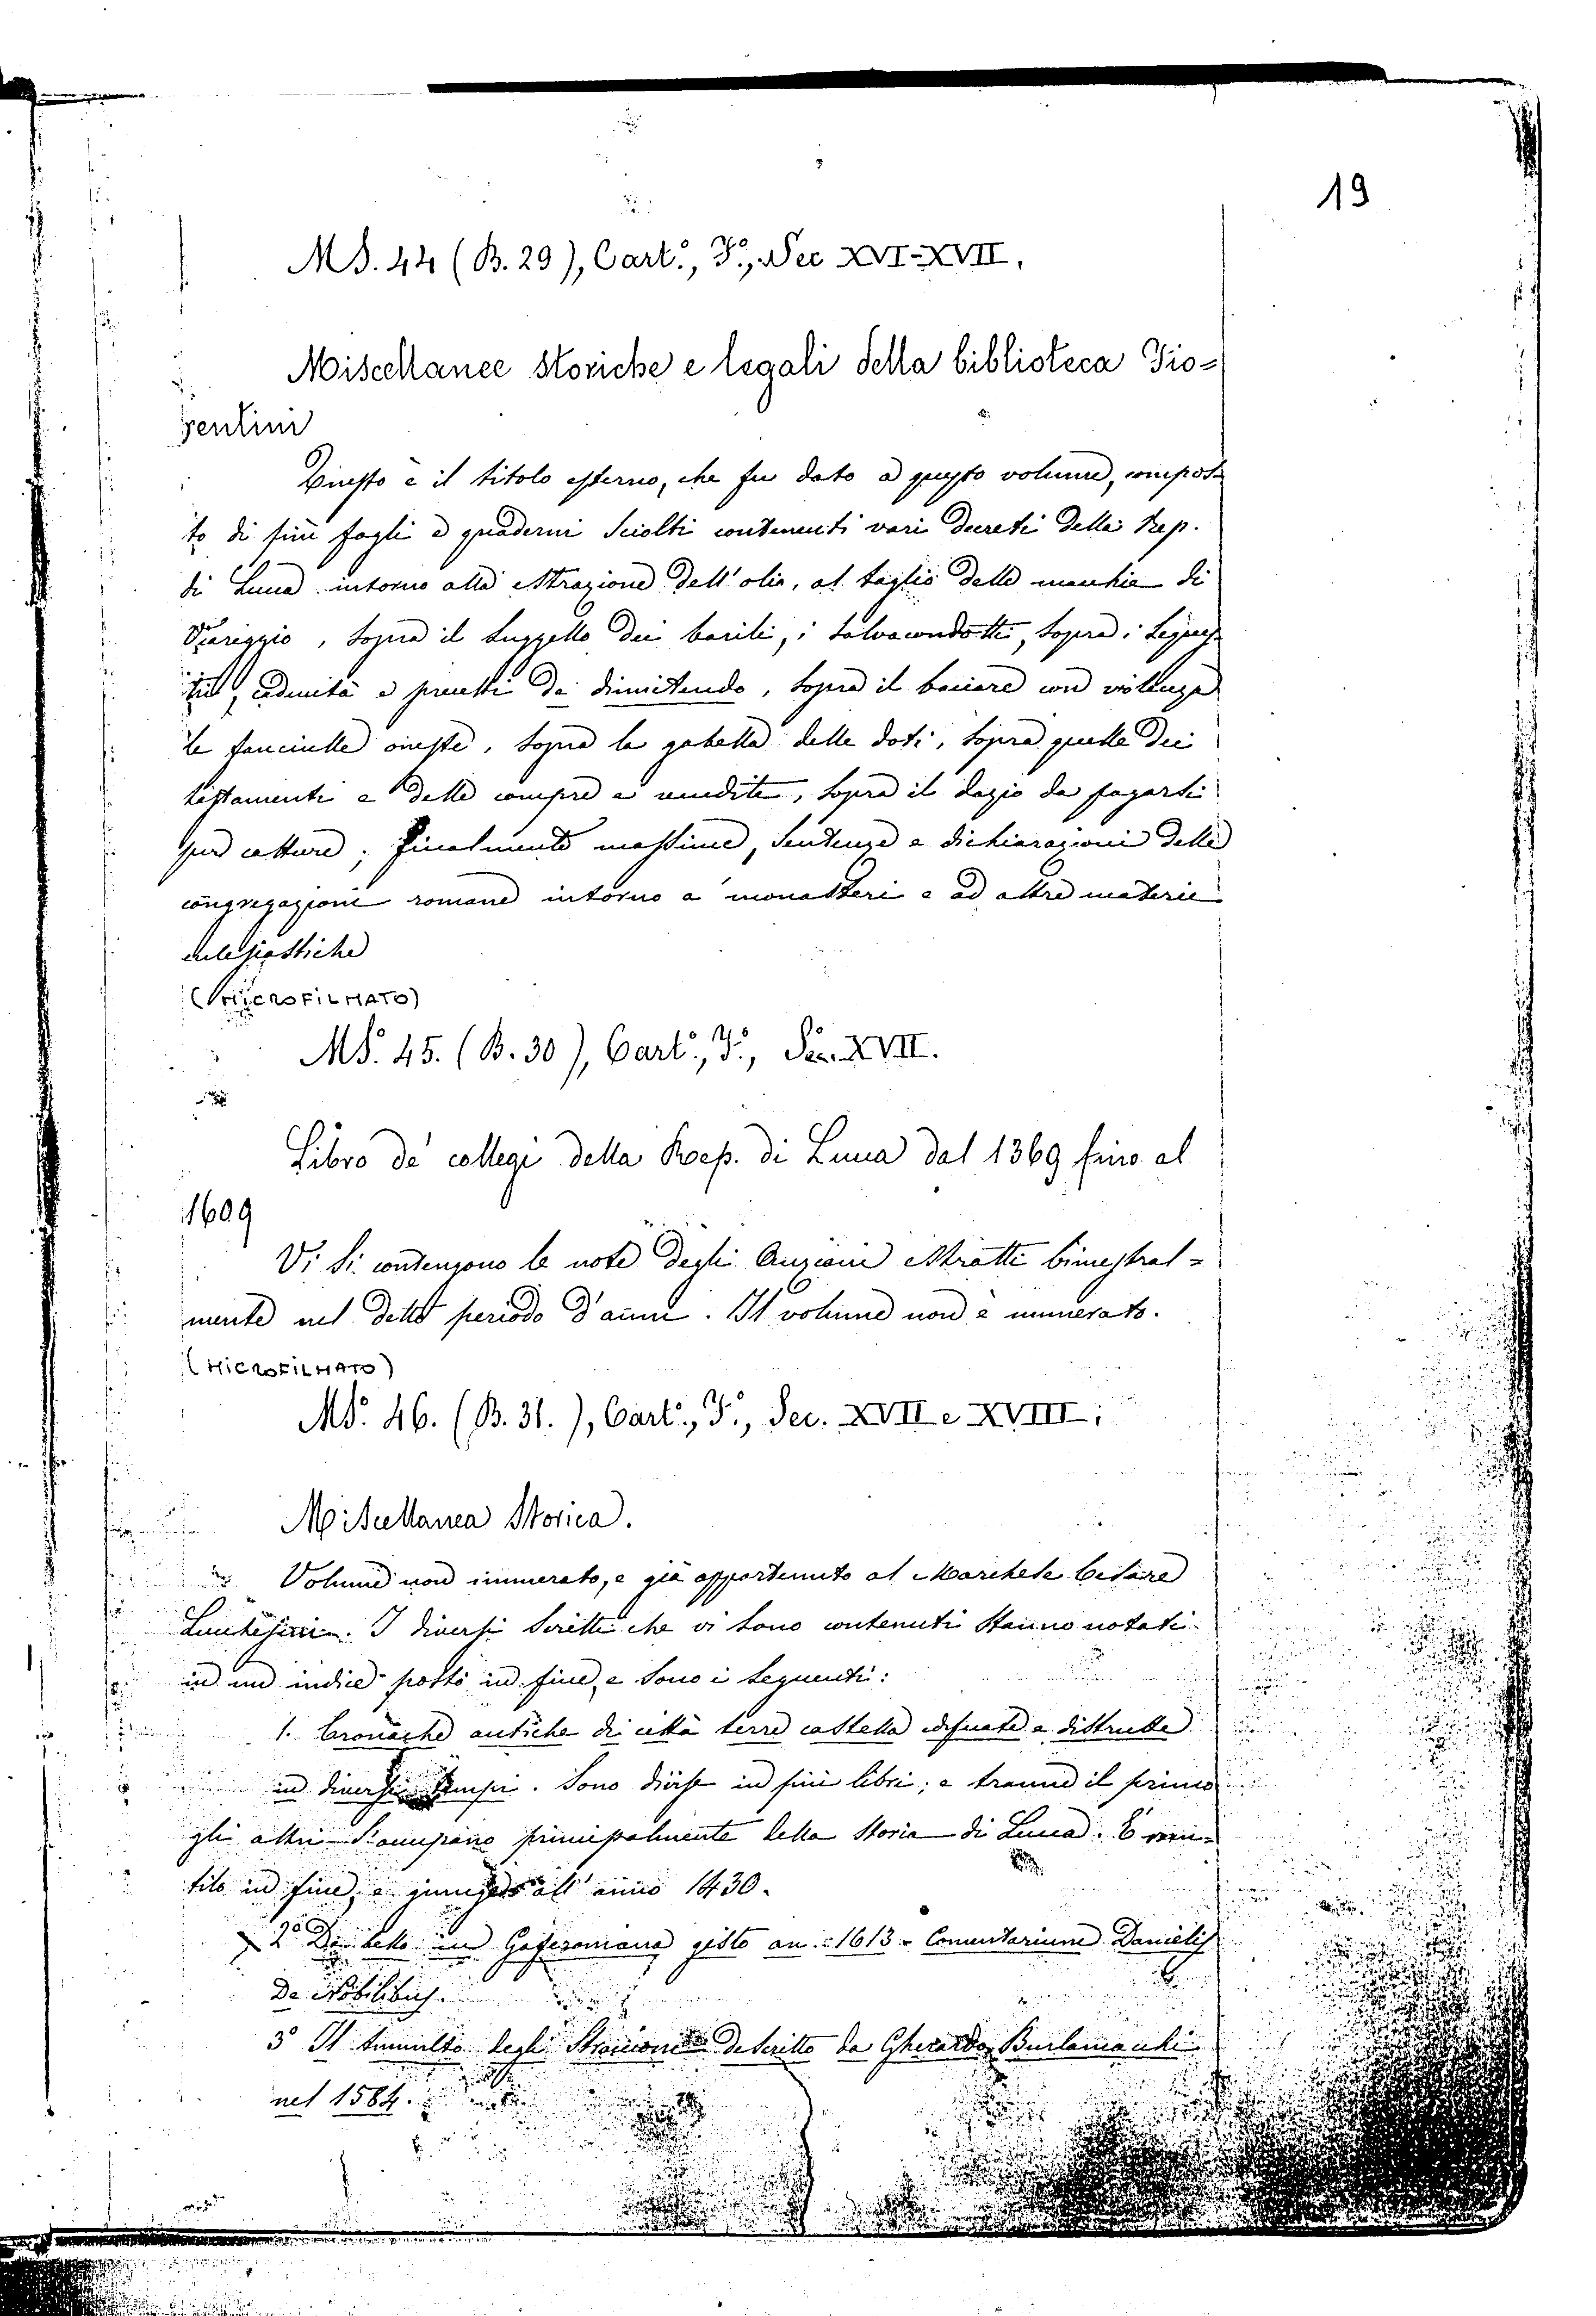 19
MS. 44 (B. 29), Cart.°, F.°, Sec XVI-XVII.
Miscellanee storiche e legali della biblioteca Fio=
rentini
Questo è il titolo esterno, che fu dato a questo volume, compos=
to di più fogli e quaderni sciolti contenenti vari decreti della Rep.
di Lucca intorno alla estrazione dell'olio, al taglio delle macchie di
Viareggio, sopra il suggello dei barili, i salvacondotti, sopra i seques=
tri, caducità e precetti de dimittendo, sopra il baciare con violenza
le fanciulle oneste, sopra la gabella delle doti, sopra quelle dei
testamenti e delle compre e vendite, sopra il dazio da pagarsi
per catture; finalmente massime, sentenze e dichiarazioni delle
congregazioni romane intorno a' monasteri e ad altre materie
eclesiastiche
(MICROFILMATO)
MS. 45. (B. 30), Cart.°, F.°, Sec. XVII.
Libro de' collegi della Rep. di Lucca dal 1369 fino al
1609
Vi si contengono le note degli Anziani estratti bimestral=
mente nel detto periodo d'anni. Il volume non è numerato.
(MICROFILMATO)
MS. 46. (B. 31.), Cart.°, F.°, Sec. XVII e XVIII;
Miscellanea Storica.
Volume non numerato, e già appartenuto al Marchese Cesare
Lucchesini. I diversi scritti che vi sono contenuti stanno notati
in un indice posto in fine, e sono i seguenti:
1. Cronache antiche di città terre castella edificate e distrutte
in diversi tempi. Sono divise in più libri; e tranne il primo
gli altri s'occupano principalmente della storia di Lucca. È
in fine, e giunge all'anno 1430.
2° De bello in Gafesoniana gesto an. 1613 - Comentarium Danielis
De Nobilibus.
3° Il tumulto degli Straccioni descritto da Gherardo Burlamacchi
nel 1584.